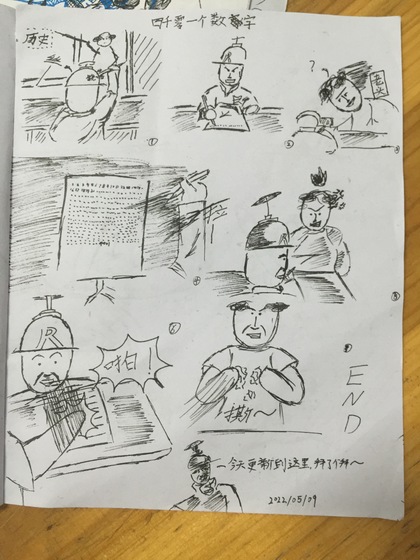 四千零一个数字
历史
①
②
?
③
④
⑤
⑥
R
啪!
撕~
END
—今天更新到这里,拜了个拜~
2022/05/09